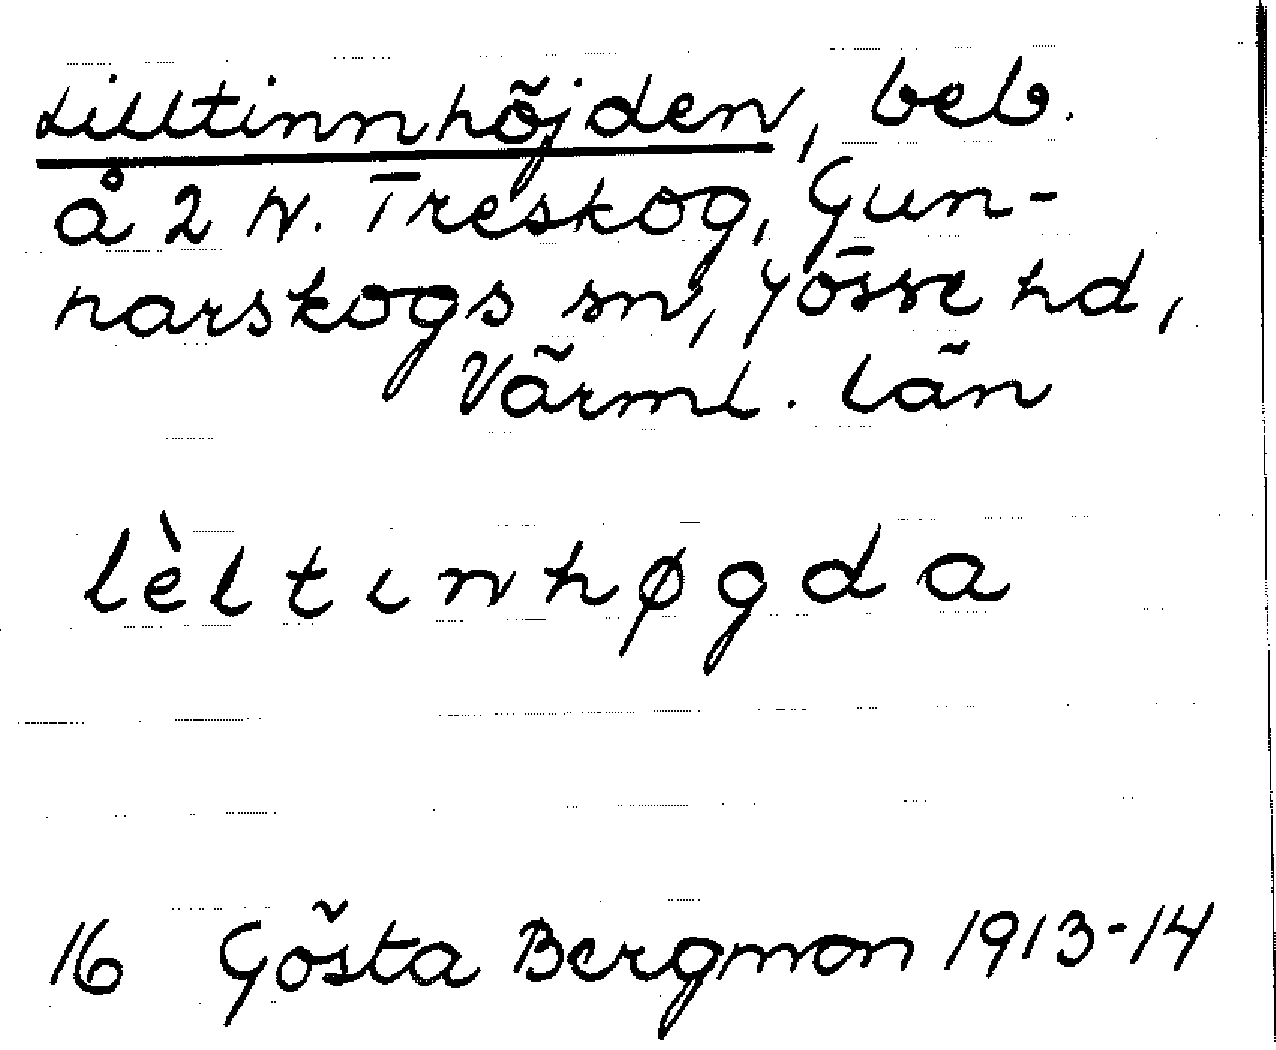 Lilltinnhöjden, beb.
å 2 N. Treskog, Gun-
narskogs sn, Jösse hd,
Värml. län
lèltınhøgda
16 Gösta Bergman 1913-14